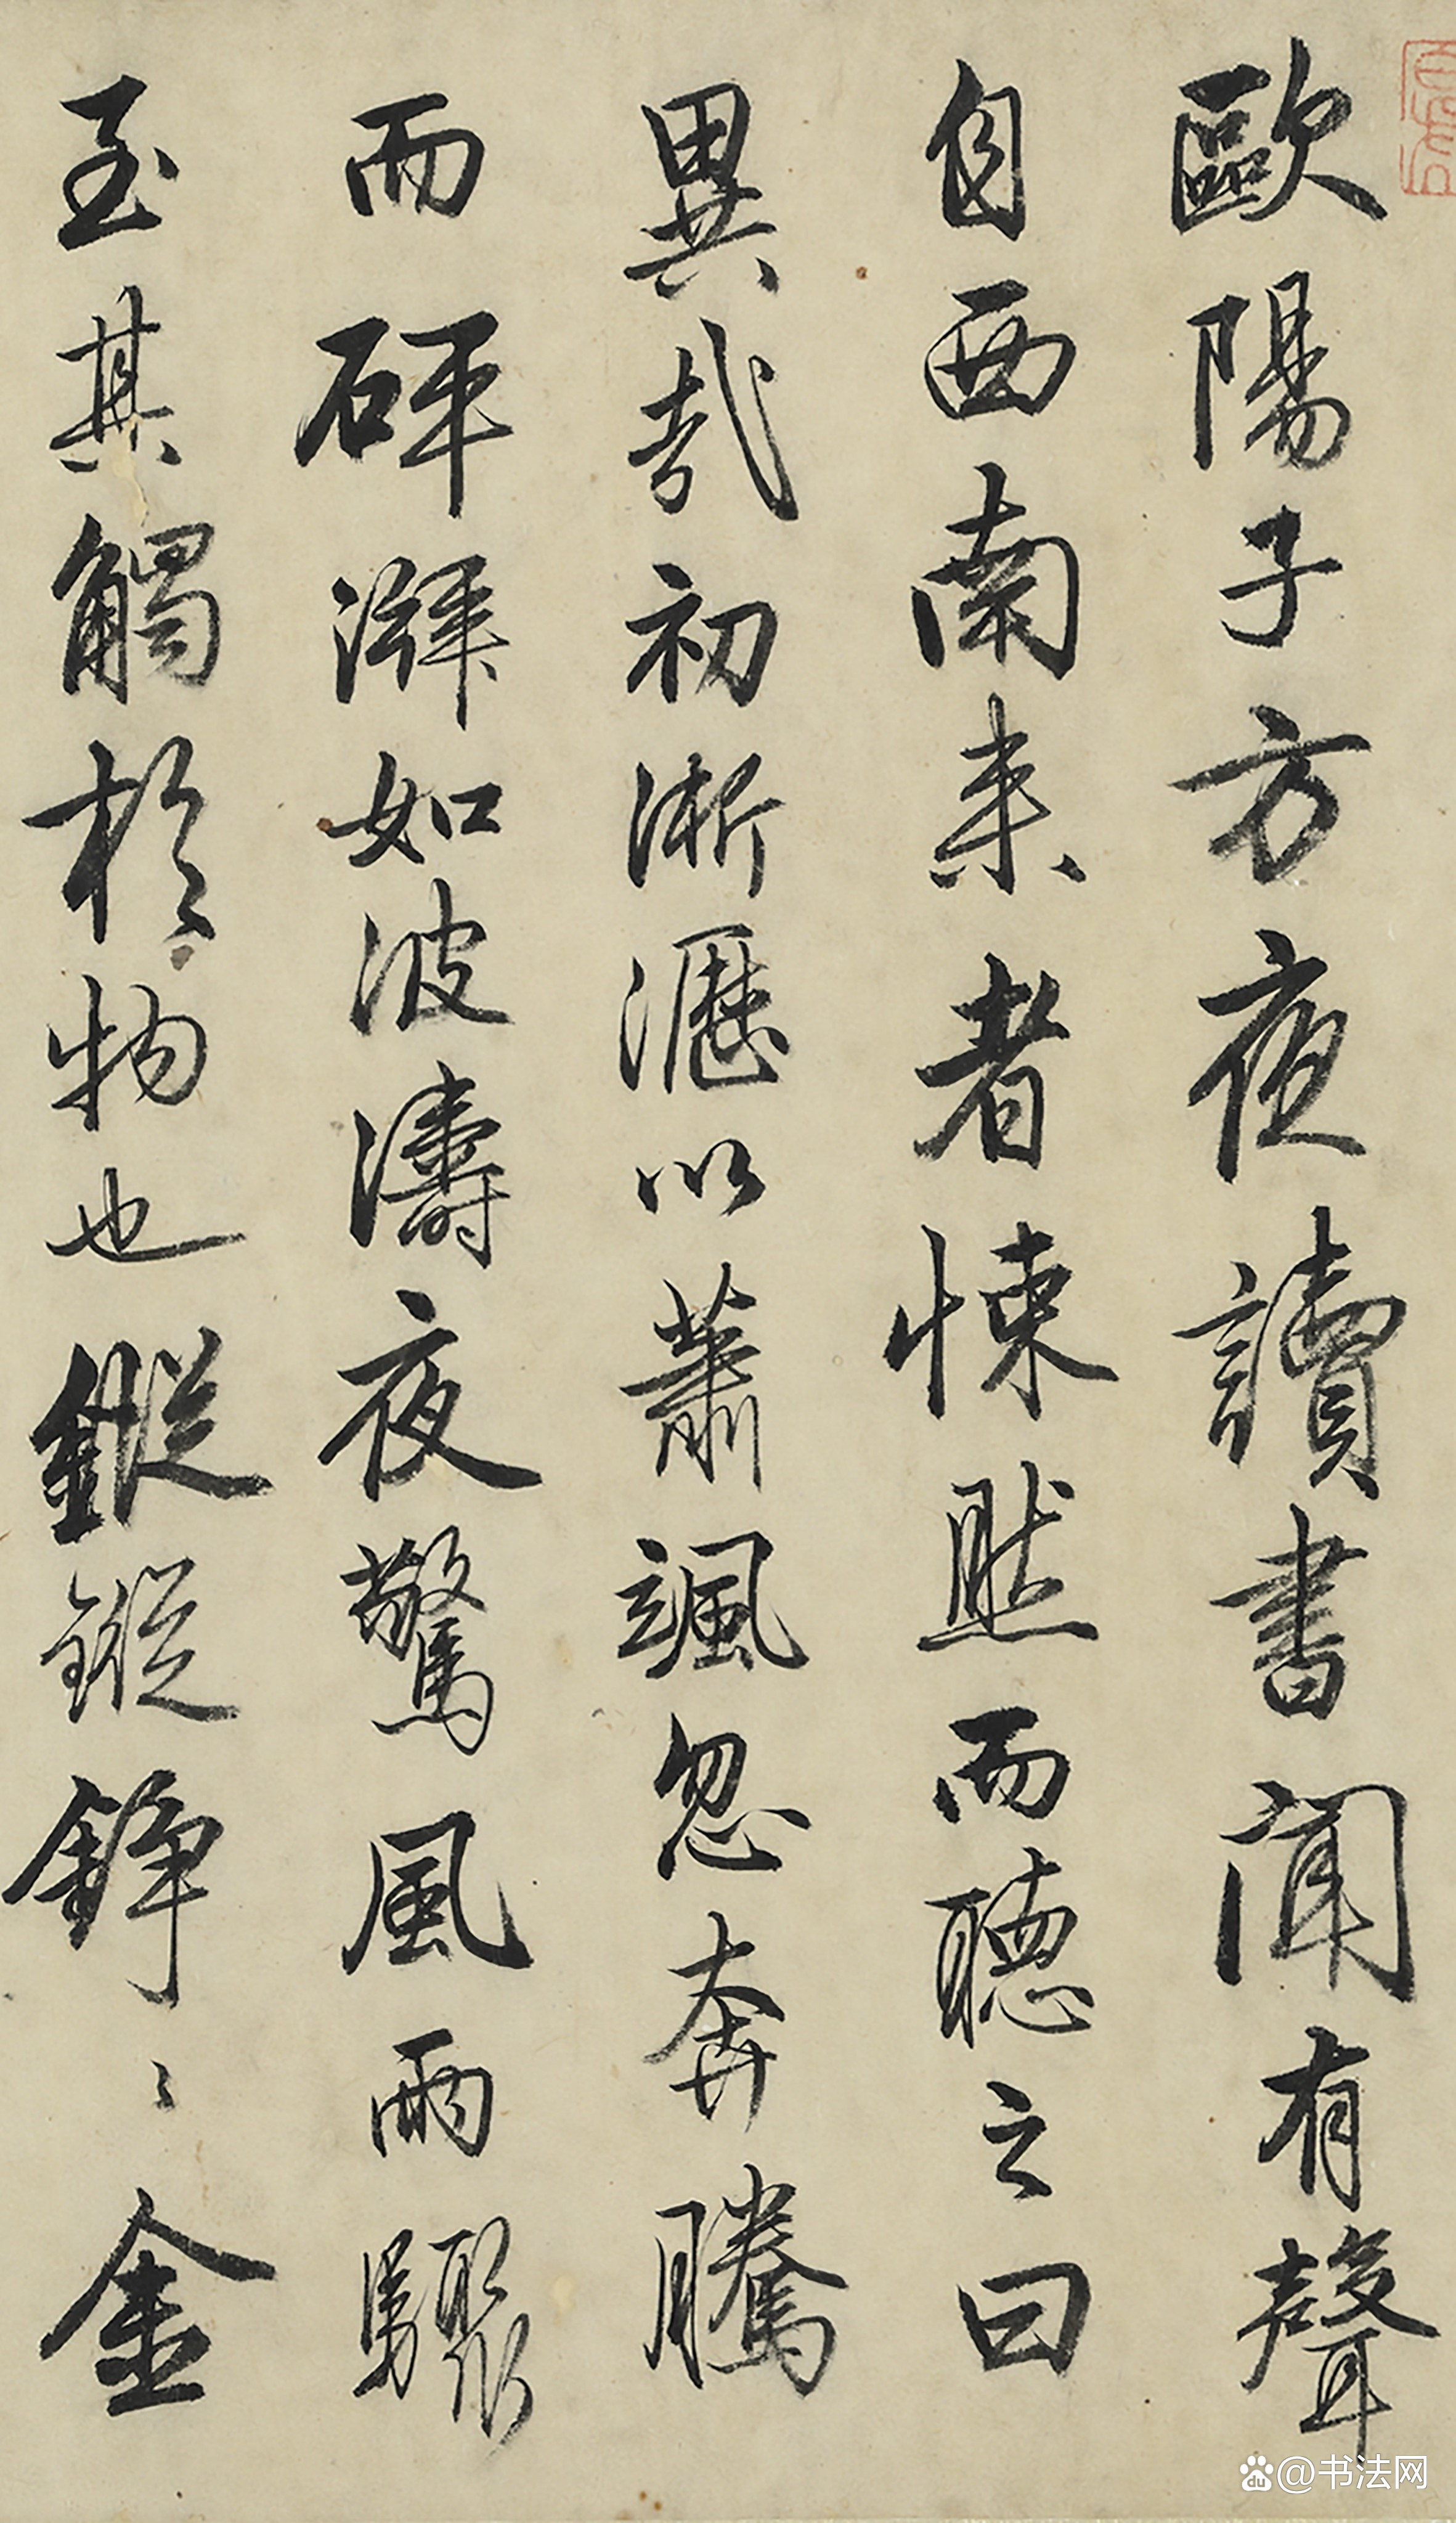 歐陽子方夜讀書聞有聲
自西南来者悚然而聽之曰
異哉初淅瀝以蕭颯忽奔騰
而砰湃如波濤夜驚風雨驟
至其觸於物也鏦鏦錚〻金
@书法网